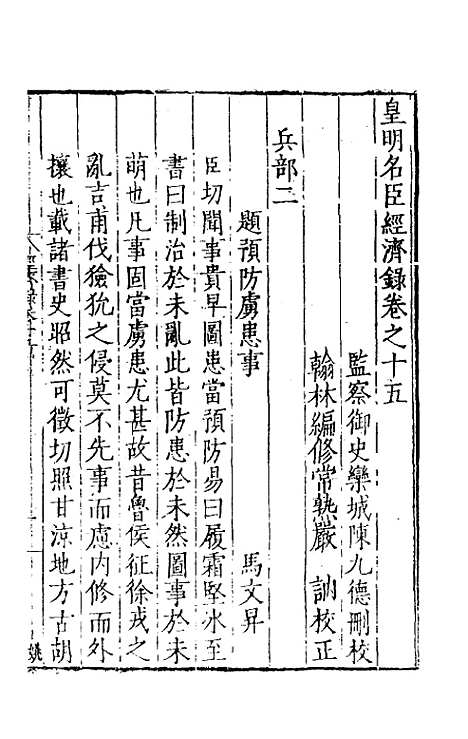 皇明名臣經濟錄卷之十五
監察御史欒城陳九德刪校
翰林編修常熟嚴 訥校正
兵部二
題預防虜患事 馬文昇
臣切聞事貴早圖患當預防易曰履霜堅冰至
書曰制治於未亂此皆防患於未然圖事於未
萌也凡事固當虜患尤甚故昔魯侯征徐戎之
亂吉甫伐獫狁之侵莫不先事而慮內修而外
攘也載諸書史昭然可徵切照甘涼地方古胡